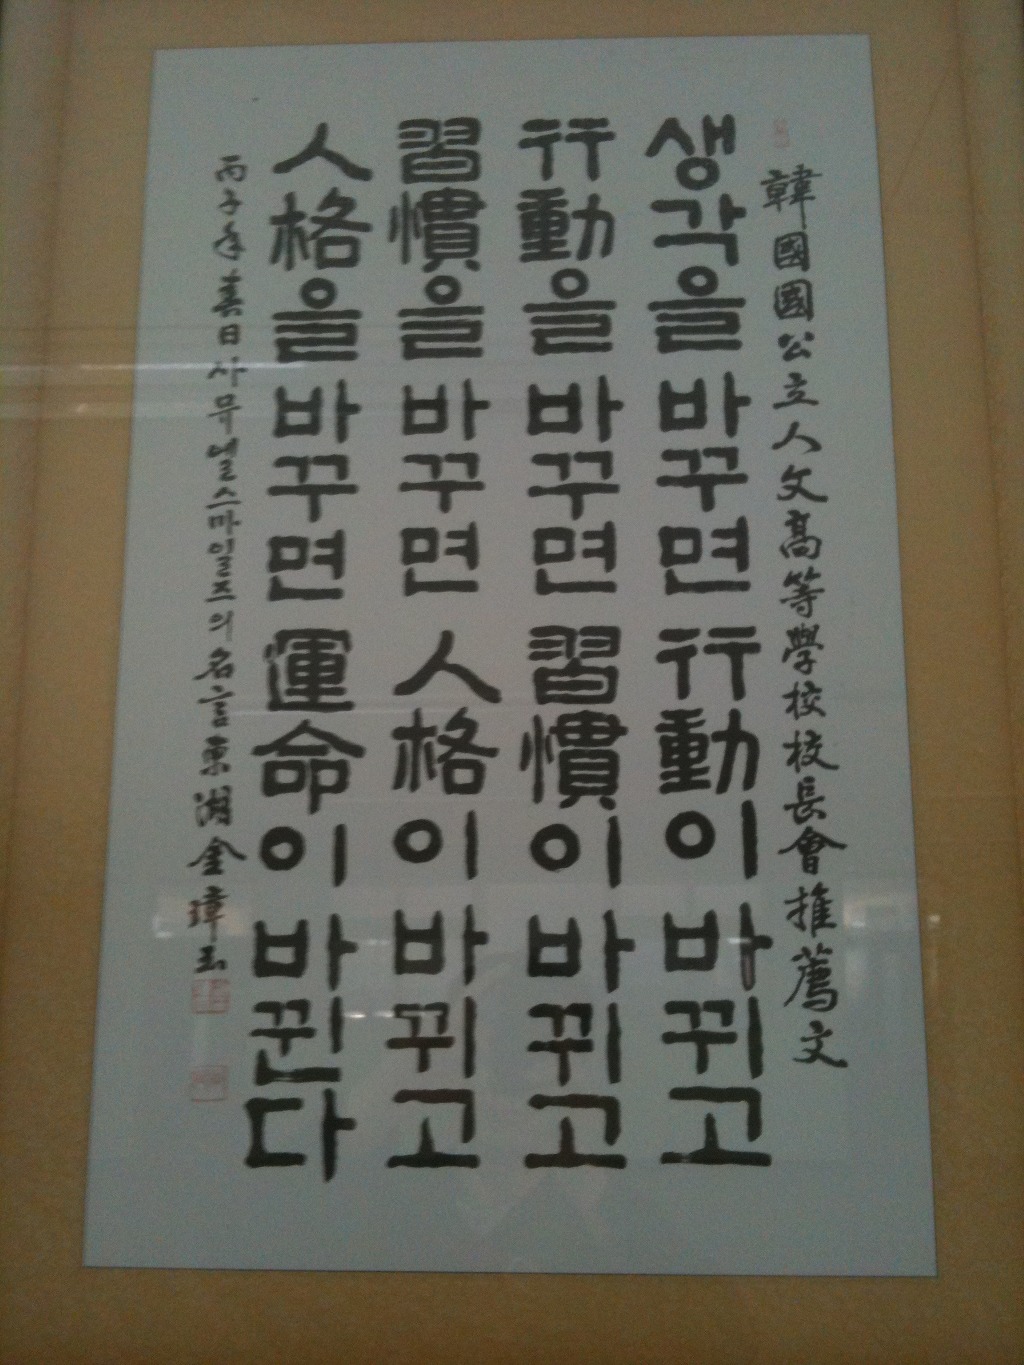 韓國國公立人文高等學校校長會推薦文
생각을 바꾸면 行動이 바뀌고
行動을 바꾸면 習慣이 바뀌고
習慣을 바꾸면 人格이 바뀌고
人格을 바꾸면 運命이 바뀐다
丙子年春日사뮤엘스마일즈의名言東湖金瑋玉